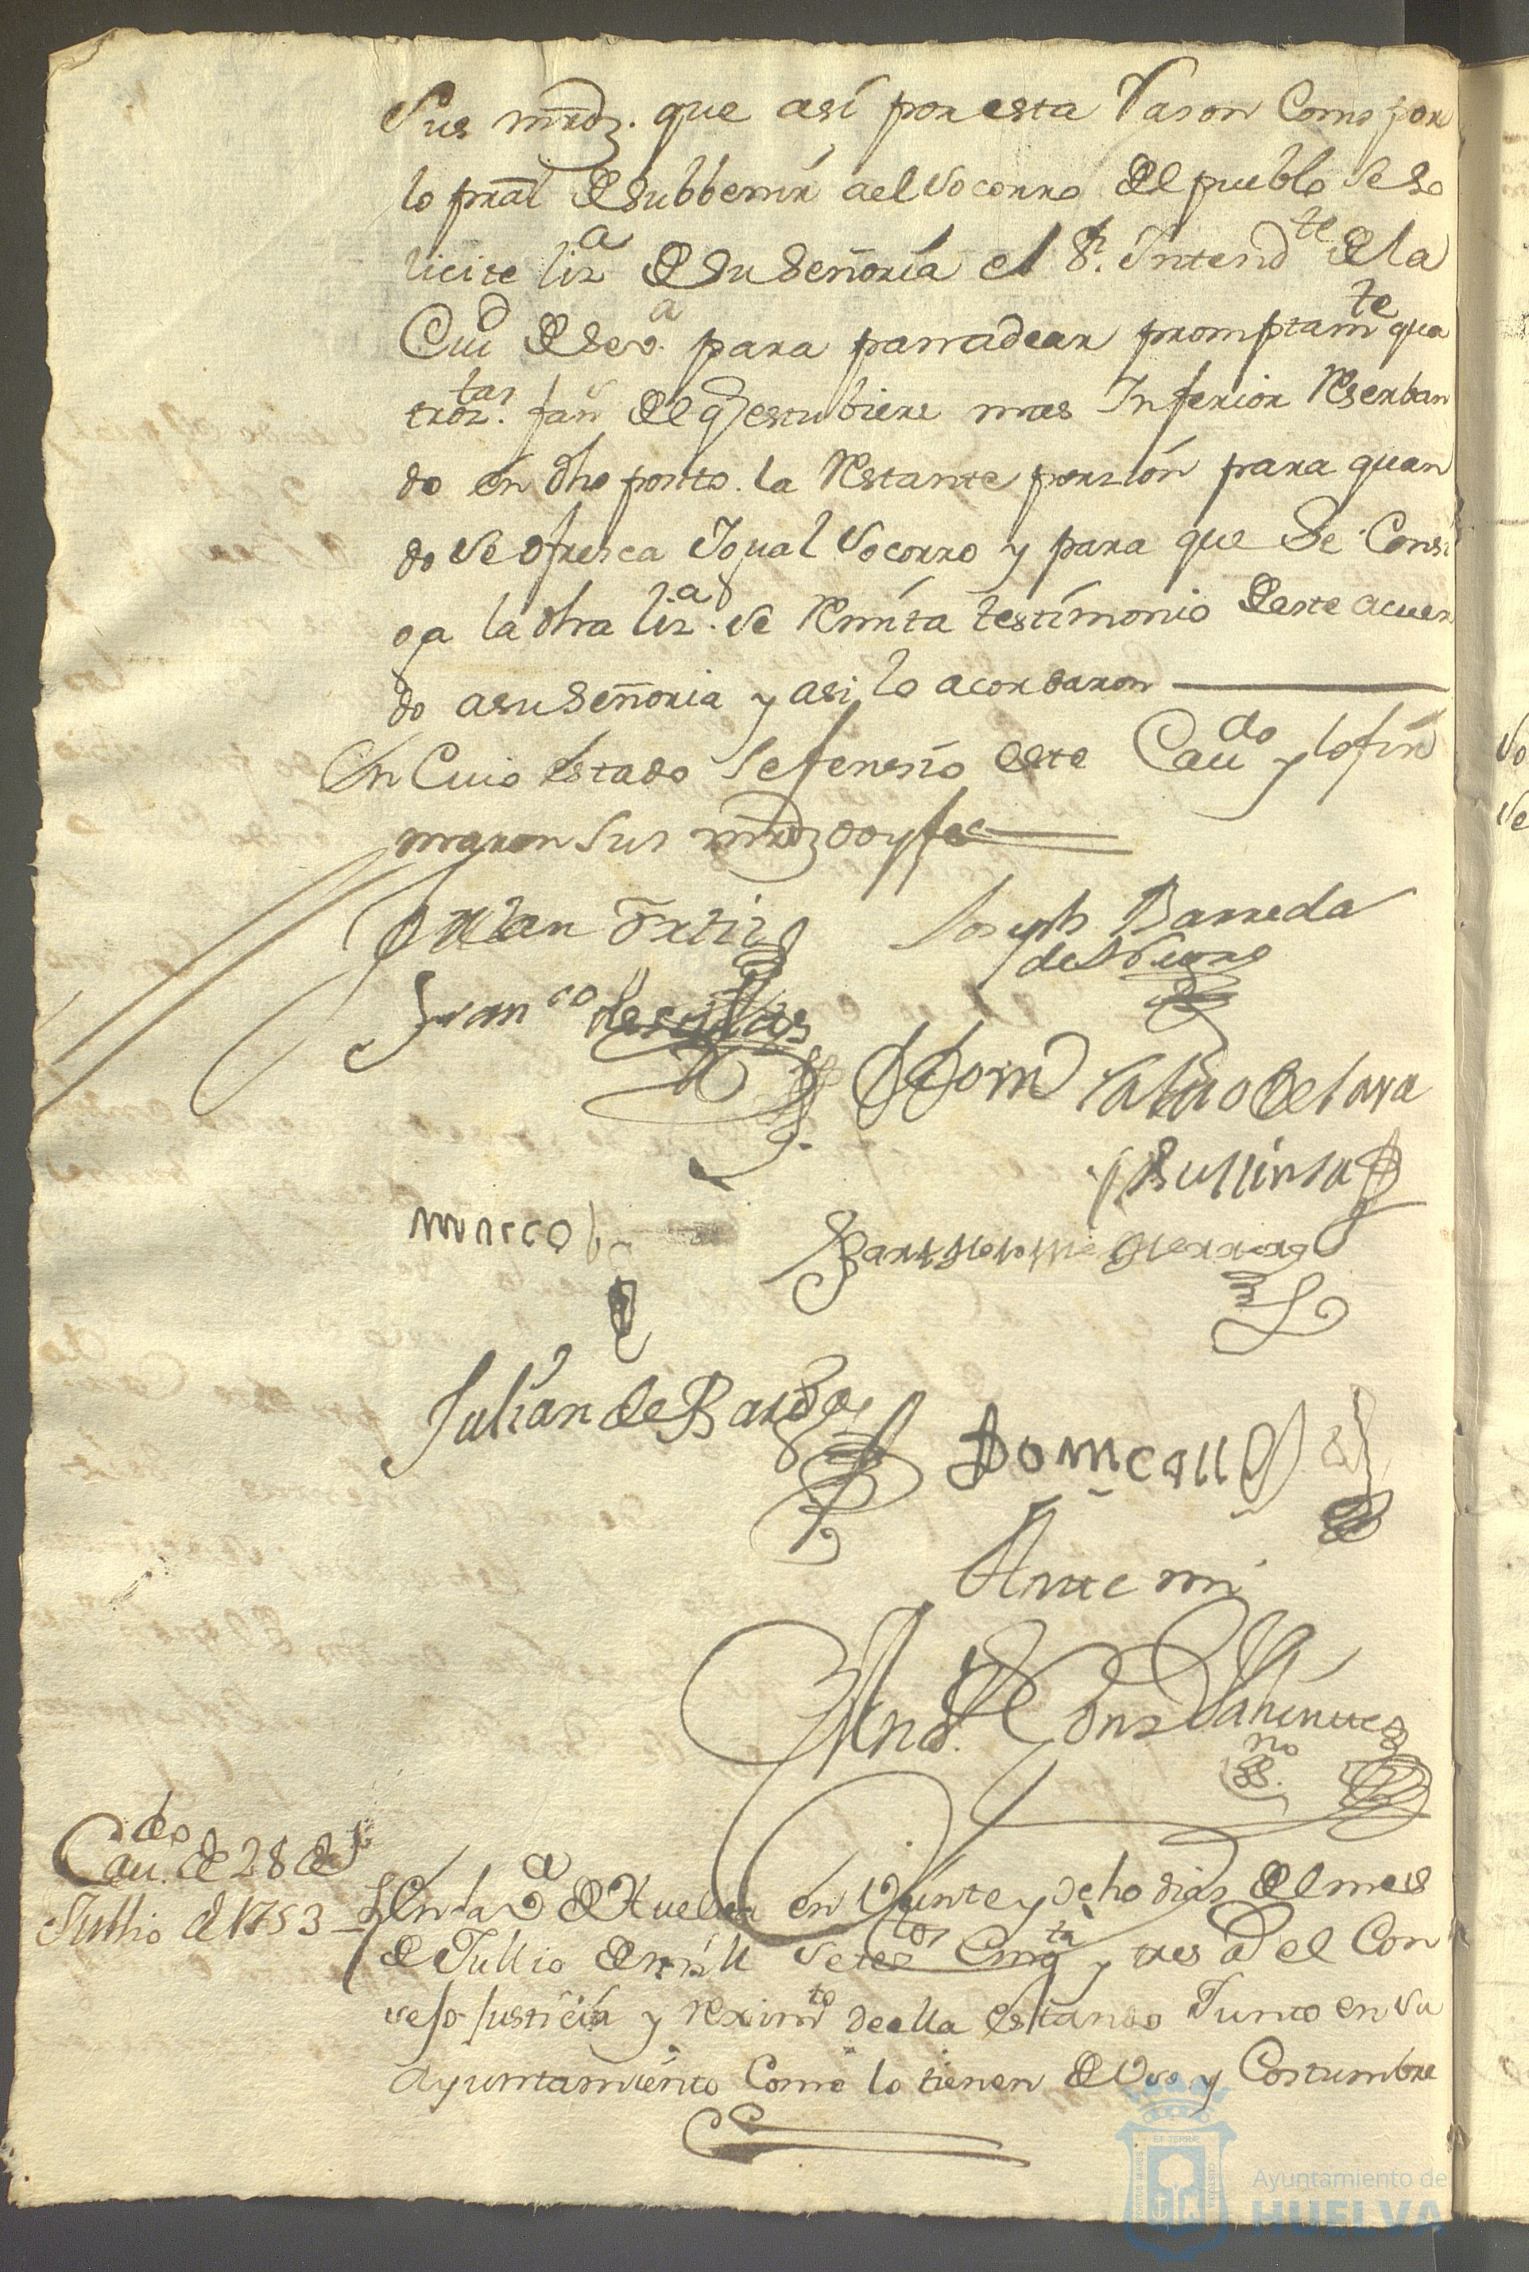 Sus mrdz. que así por esta Rason Como por
lo pral de subbenir a el Socorro del pueblo se so
licite liz.a de su Señoría el Sr. Intend.te de la
Ciud de Sev.a para panadear promptam.te qua
troz.tas fan.s del q estubiere mas Inferior Reserban
do en dho posito la Restante porzión para quan
do se ofresca Igual Socorro y para que se Consi
ga la dha liz.a se Remita testimonio de este acuer
do a su Señoria y asi lo acordaron
En Cuio estado se fenesio este Cau.do y lo fir
maron sus mrdz doy fee
Joseph Barreda
Fran.co
Marcos
Bartholome Guerrero
Julian de Barda
Ante mi
Cau.do de 28 de
Jullio de 1753
En la V.a de Huelva en Veinte y ocho dias del mes
de Jullio de mill Setez.os Cinq.ta y tres a.s el Con
sejo Justicia y Reximi.to de ella estando Junto en su
Ayuntamiento Como lo tienen de Uso y Costumbre
PORTUS MARIS ET TERRAE CUSTODIA
Ayuntamiento de
HUELVA